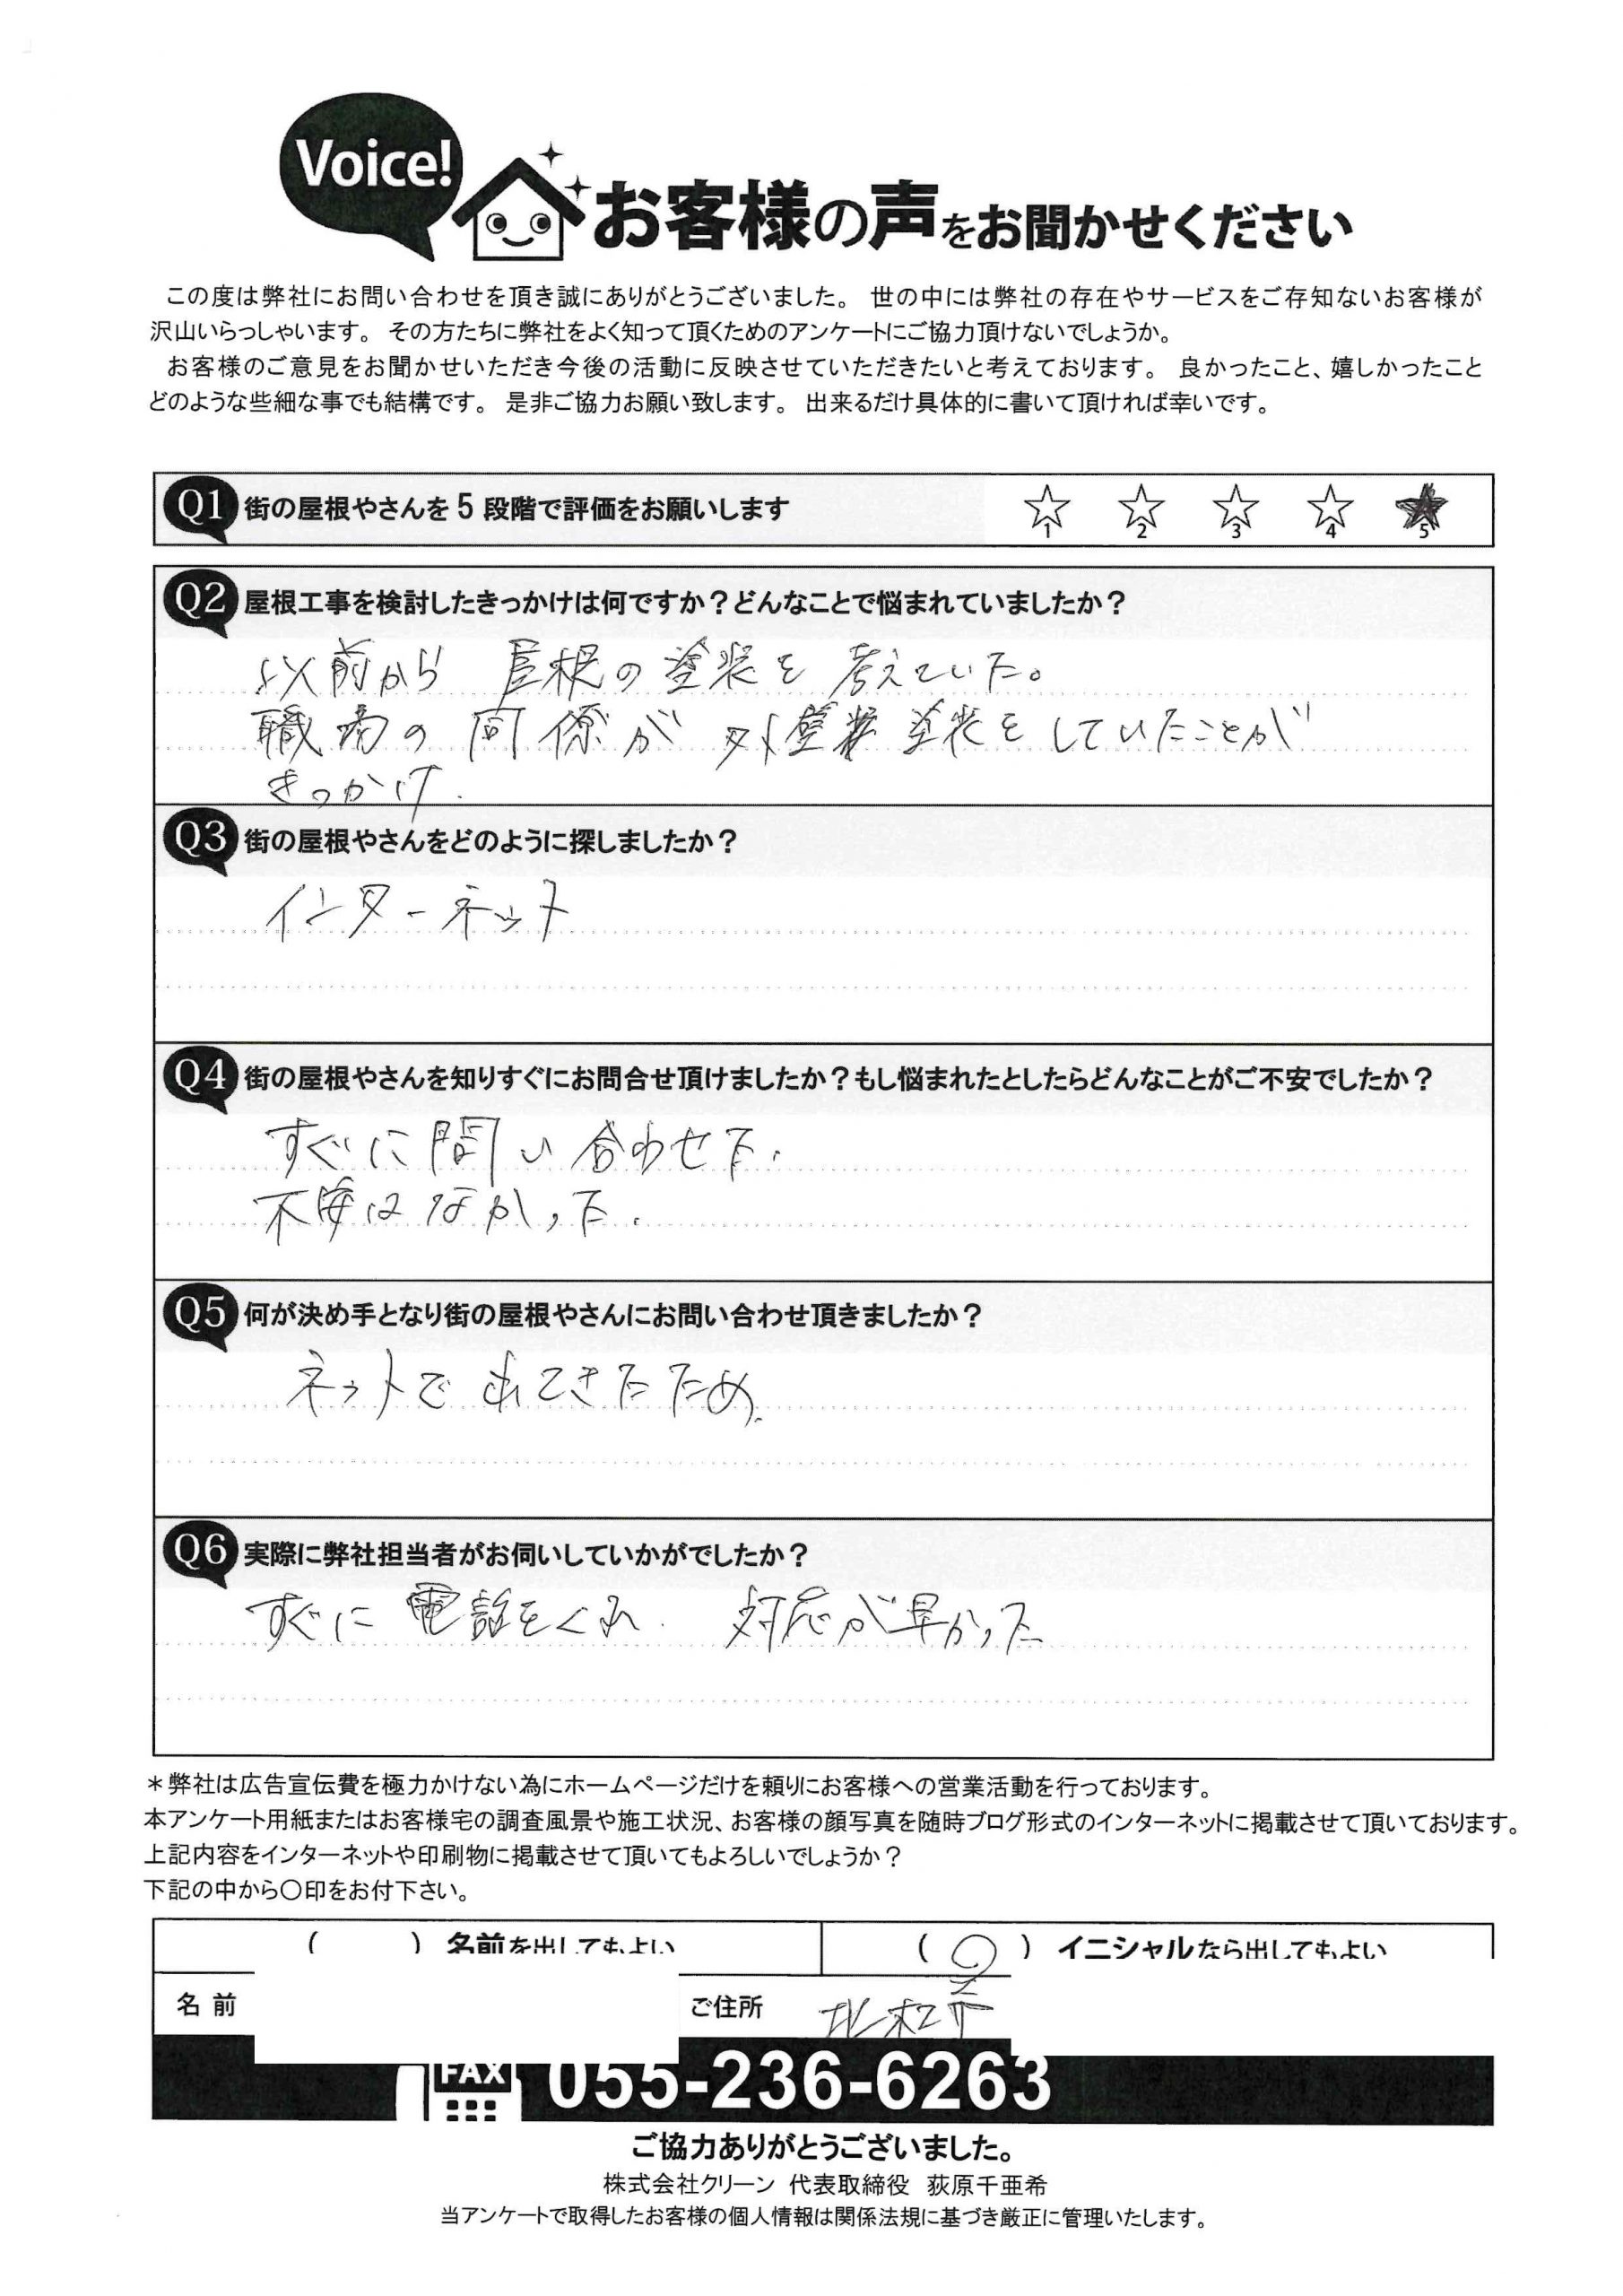 Voice!
お客様の声をお聞かせください
この度は弊社にお問い合わせを頂き誠にありがとうございました。 世の中には弊社の存在やサービスをご存知ないお客様が
沢山いらっしゃいます。 その方たちに弊社をよく知って頂くためのアンケートにご協力頂けないでしょうか。
お客様のご意見をお聞かせいただき今後の活動に反映させていただきたいと考えております。 良かったこと、嬉しかったこと
どのような些細な事でも結構です。 是非ご協力お願い致します。 出来るだけ具体的に書いて頂ければ幸いです。
Q1 街の屋根やさんを5段階で評価をお願いします ☆1 ☆2 ☆3 ☆4 ★5
Q2 屋根工事を検討したきっかけは何ですか？どんなことで悩まれていましたか？
以前から 屋根の塗装を考えていた。
職場の同僚が 外壁塗装をしていたことが
きっかけ.
Q3 街の屋根やさんをどのように探しましたか？
インターネット
Q4 街の屋根やさんを知りすぐにお問合せ頂けましたか？もし悩まれたとしたらどんなことがご不安でしたか？
すぐに問い合わせた.
不安はなかった.
Q5 何が決め手となり街の屋根やさんにお問い合わせ頂きましたか？
ネットで出てきたため.
Q6 実際に弊社担当者がお伺いしていかがでしたか？
すぐに電話をくれ. 対応が早かった
＊弊社は広告宣伝費を極力かけない為にホームページだけを頼りにお客様への営業活動を行っております。
本アンケート用紙またはお客様宅の調査風景や施工状況、お客様の顔写真を随時ブログ形式のインターネットに掲載させて頂いております。
上記内容をインターネットや印刷物に掲載させて頂いてもよろしいでしょうか？
下記の中から〇印をお付下さい。
（　　） 名前を出してもよい （〇） イニシャルなら出してもよい
名前 ご住所 北杜市
FAX 055-236-6263
ご協力ありがとうございました。
株式会社クリーン 代表取締役 荻原千亜希
当アンケートで取得したお客様の個人情報は関係法規に基づき厳正に管理いたします。